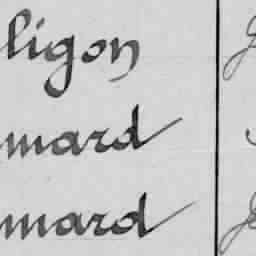 ligon
mard
mard